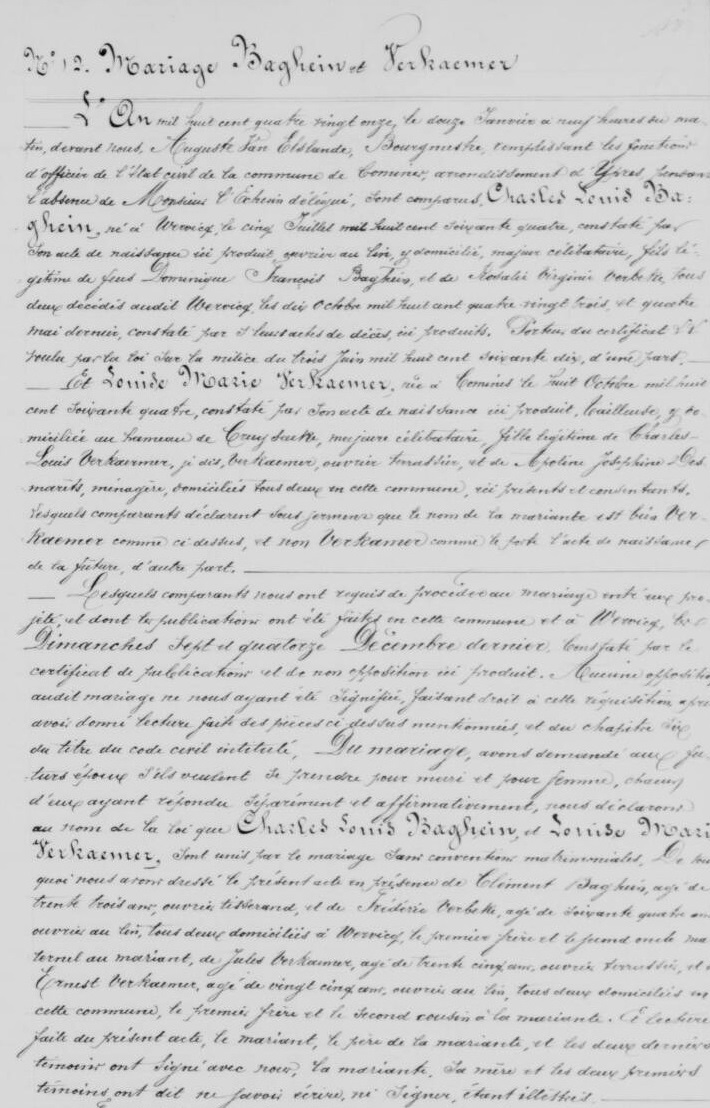 N° 12. Mariage Baghein et Verkaemer
L'An mil huit cent quatre vingt onze, le douze Janvier à neuf heures du ma-
tin, devant nous, Auguste Van Elslande, Bourgmestre, remplissant les fonctions
d'officier de l'Etat civil de la commune de Comines, arrondissement d'Ypres, pendant
l'absence de Monsieur l'Echevin délégué, sont comparus, Charles Louis Ba-
ghein, né à Wervicq, le cinq Juillet mil huit cent soixante quatre, constaté par
son acte de naissance ici produit, ouvrier au lin, y domicilié, majeur célibataire, fils lé-
gitime de feus Dominique François Baghein, et de Rosalie Virginie Verbeke, tous
deux décédés audit Wervicq, les dix Octobre mil huit cent quatre vingt trois, et quatre
mai dernier, constaté par leurs actes de décès, ici produits. Porteur du certificat
voulu par la loi sur la milice du trois Juin mil huit cent soixante dix, d'une part.
Et Louise Marie Verkaemer, née à Comines le huit Octobre mil huit
cent soixante quatre, constaté par son acte de naissance ici produit, tailleuse, y do-
miciliée au hameau de Cruyseecke, majeure célibataire, fille légitime de Charles
Louis Verkaemer, je dis, Verkaemer, ouvrier terrassier, et de Apoline Joséphine Des
marets, ménagère, domiciliés tous deux en cette commune, ici présents et consentants.
Lesquels comparants déclarent sous serment que le nom de la mariante est bien Ver-
kaemer comme ci dessus, et non Verkamer comme le porte l'acte de naissance
de la future, d'autre part.
Lesquels comparants nous ont requis de procéder au mariage entre eux pro-
jeté, et dont les publications ont été faites en cette commune et à Wervicq, les
Dimanches sept et quatorze Décembre dernier, constaté par le
certificat de publications et de non opposition ici produit. Aucune opposition
audit mariage ne nous ayant été signifiée, faisant droit à cette réquisition après
avoir donné lecture faite des pièces ci dessus mentionnées, et du chapitre six
du titre du code civil intitulé, Du mariage, avons demandé aux fu-
turs époux s'ils veulent se prendre pour mari et pour femme, chacun
d'eux ayant répondu séparément et affirmativement, nous déclarons
au nom de la loi que Charles Louis Baghein, et Louise Marie
Verkaemer, sont unis par le mariage sans conventions matrimoniales. De tout
quoi nous avons dressé le présent acte en présence de Clément Baghein, agé de
trente trois ans, ouvrier tisserand, et de Frédéric Verbeke, agé de soixante quatre ans
ouvrier au lin, tous deux domiciliés à Wervicq, le premier frère et le second oncle ma
ternel au mariant, de Jules Verkaemer, agé de trente cinq ans, ouvrier terrassier, et
Ernest Verkaemer, agé de vingt cinq ans, ouvrier au lin, tous deux domiciliés en
cette commune, le premier frère et le second cousin à la mariante. A lecture
faite du présent acte, le mariant, le père de la mariante, et les deux derniers
témoins ont signé avec nous, la mariante, sa mère et les deux premiers
témoins ont dit ne savoir écrire, ni signer, étant illettrés.